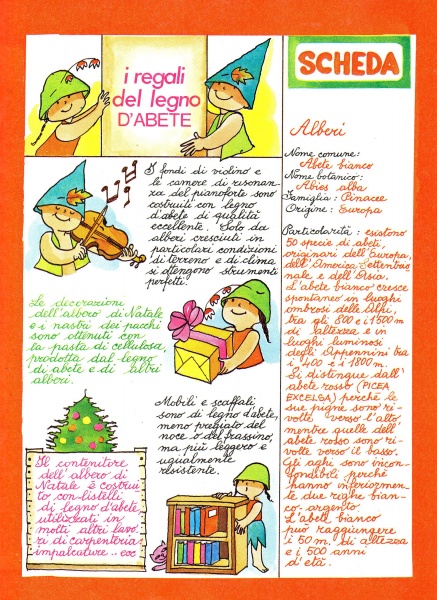 i regali
del legno
D'ABETE
I fondi di violino e
le camere di risonan-
za del pianoforte sono
costruiti con legno
d'abete di qualità
eccellente. Solo da
alberi cresciuti in
particolari condizioni
di terreno e di clima
si ottengono strumenti
perfetti.
Le decorazioni
dell'albero di Natale
e i nastri dei pacchi
sono ottenuti con
la pasta di cellulosa,
prodotta dal legno
di abete e di altri
alberi.
Mobili e scaffali
sono di legno d'abete,
meno pregiato del
noce o del frassino,
ma più leggero e
ugualmente
resistente.
Il contenitore
dell'albero di
Natale è costrui
to con listelli
di legno d'abete,
utilizzati in
molti altri lavo.
ri di carpenteria
impalcature .. ecc
SCHEDA
Alberi
Nome comune:
Abete bianco
Nome botanico:
Abies alba
Famiglia: Pinacee
Origine: Europa
Particolarità: esistono
50 specie di abeti,
originari dell'Europa,
dell'America Settentrio
nale e dell'Asia.
L'abete bianco cresce
spontaneo in luoghi
ombrosi delle Alpi,
tra gli 800 e i 1500 m
di altezza e in
luoghi luminosi
degli Appennini tra
i 400 e i 1800 m.
Si distingue dall'
abete rosso (PICEA
EXCELSA) perché le
sue pigne sono ri
volte verso l'alto
mentre quelle dell'
abete rosso sono ri-
volte verso il basso.
Gli aghi sono incon-
fondibili perché
hanno inferiormen-
te due righe bian-
co-argento.
L'abete bianco
può raggiungere
i 50 m. di altezza
e i 500 anni
d'età.